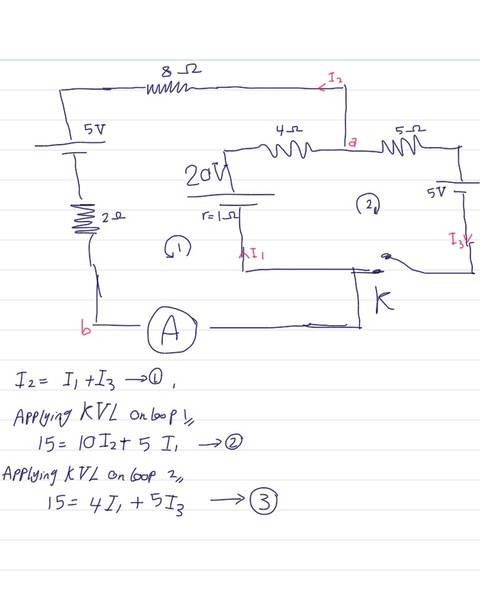 8Ω
I₂
5V
4Ω
a
5Ω
20V
5V
r=1Ω
2Ω
1
2
I₁
I₃
K
b
A
I₂ = I₁ + I₃ → ①,
Applying KVL on loop 1,,
15 = 10 I₂ + 5 I₁ → ②
Applying KVL on loop 2,,
15 = 4 I₁ + 5 I₃ → ③